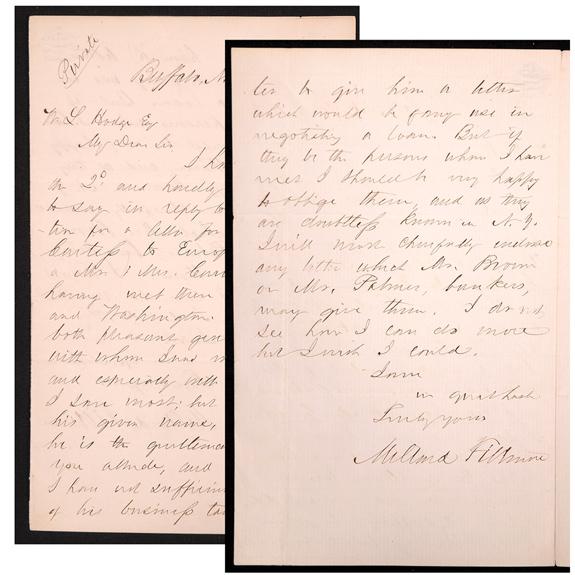 Private
Buffalo, N
Wm L Hodge Esq
My Dear Sir
I ha
the 2d and hardly
to say in reply to
tion for a letter for
Curtess to Europ
a Mr & Mrs. Curt
having met them
and Washington.
both pleasant gen
with whom I was
and especially with
I saw most; but
his given name,
he is the gentleman
you allude, and
I have not sufficien
of his business ta
ter to give him a letter
which would be of any use in
negotiating a loan. But if
they be the persons whom I have
met I should be very happy
to oblige them, and as they
are doubtless known in N.Y.
I will most cheerfully endorse
any letter which Mr. Brown
or Mr. Palmer, bankers,
may give them. I do not
see how I can do more
but I wish I could.
I am
in great haste
Truly yours
Millard Fillmore